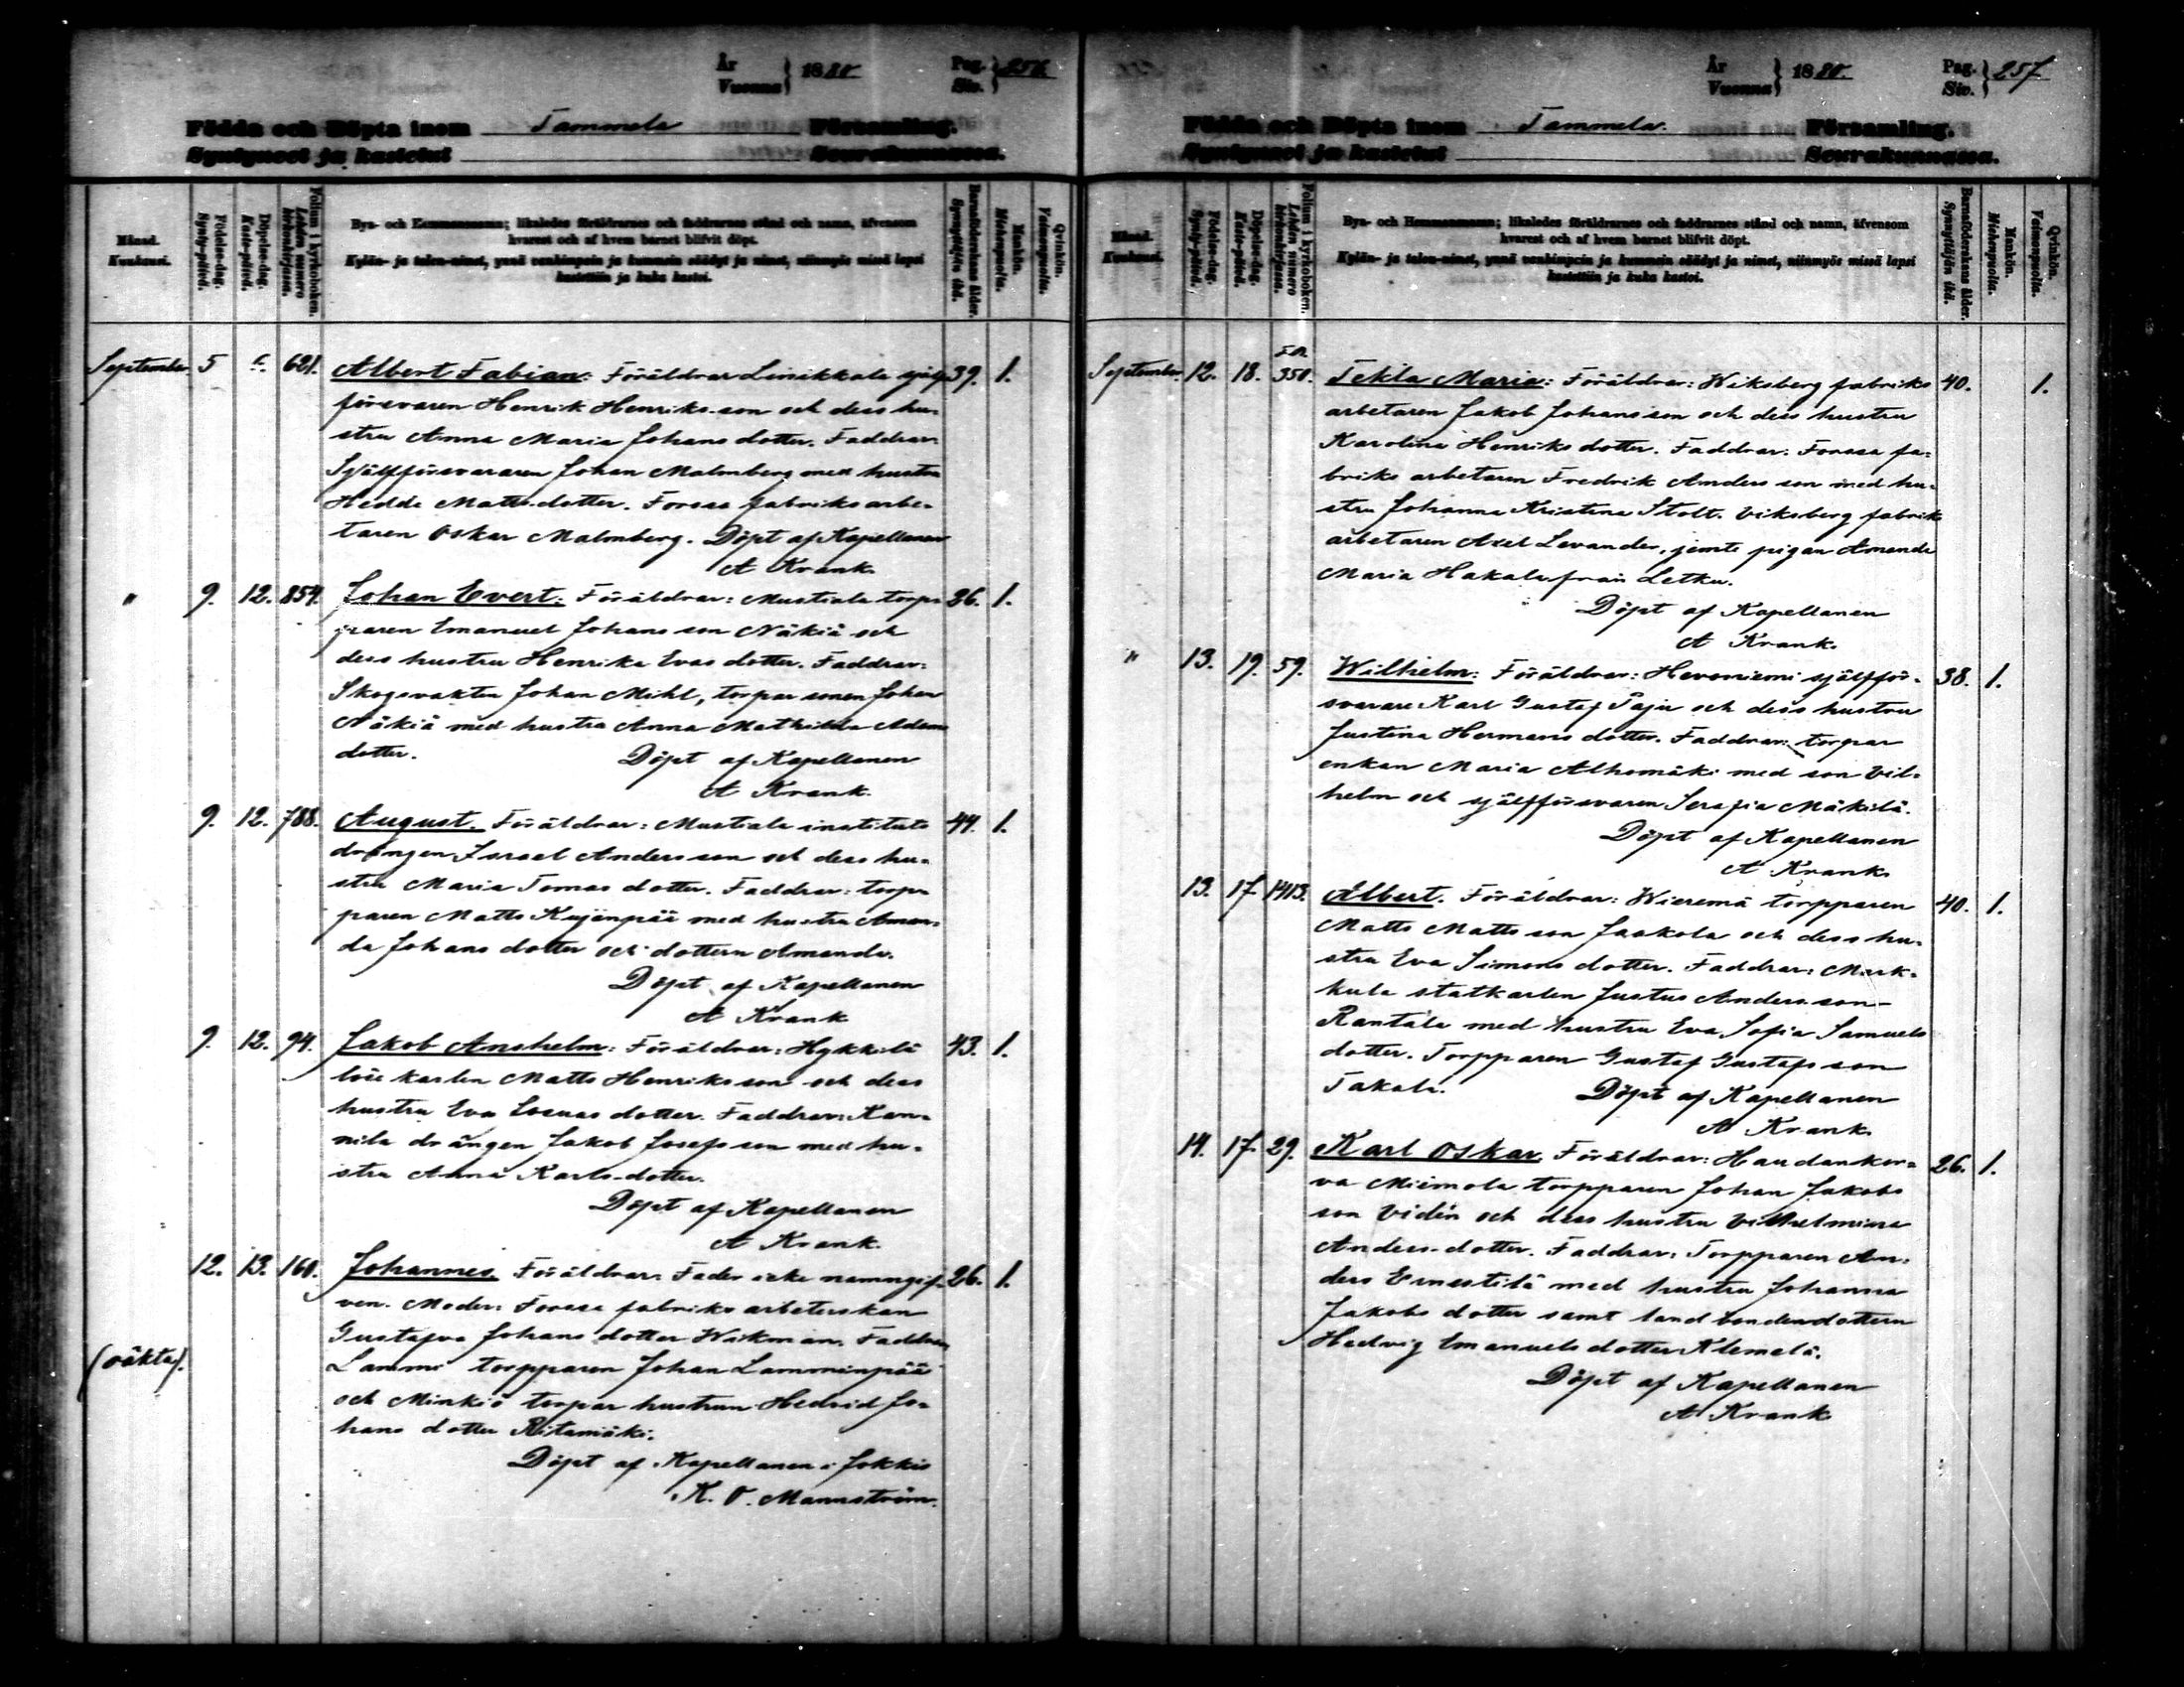 År
Vuonna } 1880 Pag.
Siv. } 256
Födda och Döpta inom Tammela Församling.
Syntyneet ja kastetut Seurakunnassa.
Månad.
Kuukausi.
Födelse-dag.
Synty-päivä.
Döpelse-dag.
Kaste-päivä.
Folium i kyrkoboken.
Lehden numero
kirkonkirjassa.
Bya- och Hemmansnamn; likaledes föräldrarnes och faddrarnes stånd och namn, äfvensom
hvarest och af hvem barnet blifvit döpt.
Kylän- ja talon-nimet, ynnä vanhinpain ja kummein säädyt ja nimet, niinmyös missä lapsi
kastettiin ja kuka kastoi.
Barnaföderskans ålder.
Synnyttäjän ikä.
Mankön.
Miehenpuolia.
Qvinkön.
Vaimonpuolia.
September. 5 621. Albert Fabian: Föräldrar Linikkala själf- 39. 1.
försvaren Henrik Henriks-son och dess hu-
stru Anna Maria Johans dotter. Faddrar:
Självförsvararen Johan Malmberg med hustru
Hedda Matts-dotter. Forssa fabriks arbe-
taren Oskar Malmberg. Döpt af Kapellanen
A Krank.
" 9. 12. 854. Johan Evert. Föräldrar: Mustiala torp- 36. 1.
paren Emanuel Johans son Näkiä och
dess hustru Henrika Evas dotter. Faddrar:
Skogsvakten Johan Mihl, torpar sonen Johan
Näkiä med hustru Anna Mathilda Adams
dotter. Döpt af Kapellanen
A Krank.
9. 12. 788. August. Föräldrar: Mustiala instituts 44. 1.
drängen Israel Anders son och dess hu-
stru Maria Tomas dotter. Faddrar: torp-
paren Matts Kujanpää med hustru Aman-
da Johans dotter och dottern Amanda.
Döpt af Kapellanen
A Krank
9. 12. 94. Jakob Anshelm: Föräldrar: Hykkilä 43. 1.
löse karlen Matts Henriks son och dess
hustru Eva dotter. Faddrar: Kan-
nila drängen Jakob Josefs son med hu-
stru Anna Karls-dotter.
Döpt af Kapellanen
A Krank.
12. 13. 160. Johannes. Föräldrar. Fader icke namngif- 26. 1.
ven. Moder: Forssa fabriks arbeterskan
Gustafva Johans dotter Wikman. Faddrar
(oäkta). Lammi torpparen Johan Lamminpää
och Minkiö torpar hustrun Hedvid Jo-
hans dotter Ritamäki.
Döpt af Kapellanen i Jokkis
K. O. Mannström.
År
Vuonna } 1880. Pag.
Siv. } 257
Födda och Döpta inom Tammela. Församling.
Syntyneet ja kastetut Seurakunnassa.
Månad.
Kuukausi.
Födelse-dag.
Synty-päivä.
Döpelse-dag.
Kaste-päivä.
Folium i kyrkoboken.
Lehden numero
kirkonkirjassa.
Bya- och Hemmansnamn; likaledes föräldrarnes och faddrarnes stånd och namn, äfvensom
hvarest och af hvem barnet blifvit döpt.
Kylän- ja talon-nimet, ynnä vanhinpain ja kummein säädyt ja nimet, niinmyös missä lapsi
kastettiin ja kuka kastoi.
Barnaföderskans ålder.
Synnyttäjän ikä.
Mankön.
Miehenpuolia.
Qvinkön.
Vaimonpuolia.
September. 12. 18. 350. Tekla Maria: Föräldrar: Wiksberg fabriks 40. 1.
arbetaren Jakob Johans son och dess hustru
Karolina Henriks dotter. Faddrar: Forssa fa-
briks arbetaren Fredrik Anders son med hu-
stru Johanna Kristina Stolt. Viksberg fabriks
arbetaren Axel Levander, jemte pigan Amanda
Maria Hakala från Letku.
Döpt af Kapellanen
A Krank.
" 13. 19. 59. Wilhelm: Föräldrar: Hevoniemi själfför- 38. 1.
svarare Karl Gustaf Paju och dess hustru
Justina Hermans dotter. Faddrar: torpar
enkan Maria Alhomäki med son Vil-
helm och själfförsvaren Serafia Mäkilä.
Döpt af Kapellanen
A Krank.
13. 17 1413. Albert. Föräldrar: Wieremä torpparen 40. 1.
Matts Matts son Jaakola och dess hu-
stru Eva Simons dotter. Faddrar: Mark-
kula statkarlen Justus Anders son-
Rantala med hustru Eva Sofia Samuels
dotter. Torpparen Gustaf Gustafs son
Takala. Döpt af Kapellanen
A Krank.
14. 17. 29. Karl Oskar. Föräldrar: Haudankor- 26. 1.
va Miemola torpparen Johan Jakobs
son Vidén och dess hustru Vilhelmina
Anders-dotter. Faddrar: Torpparen An-
ders Ernestilä med hustru Johanna
Jakobs dotter samt landbondendottern
Hedvig Emanuels dotter Klemelä.
Döpt af Kapellanen
A Krank